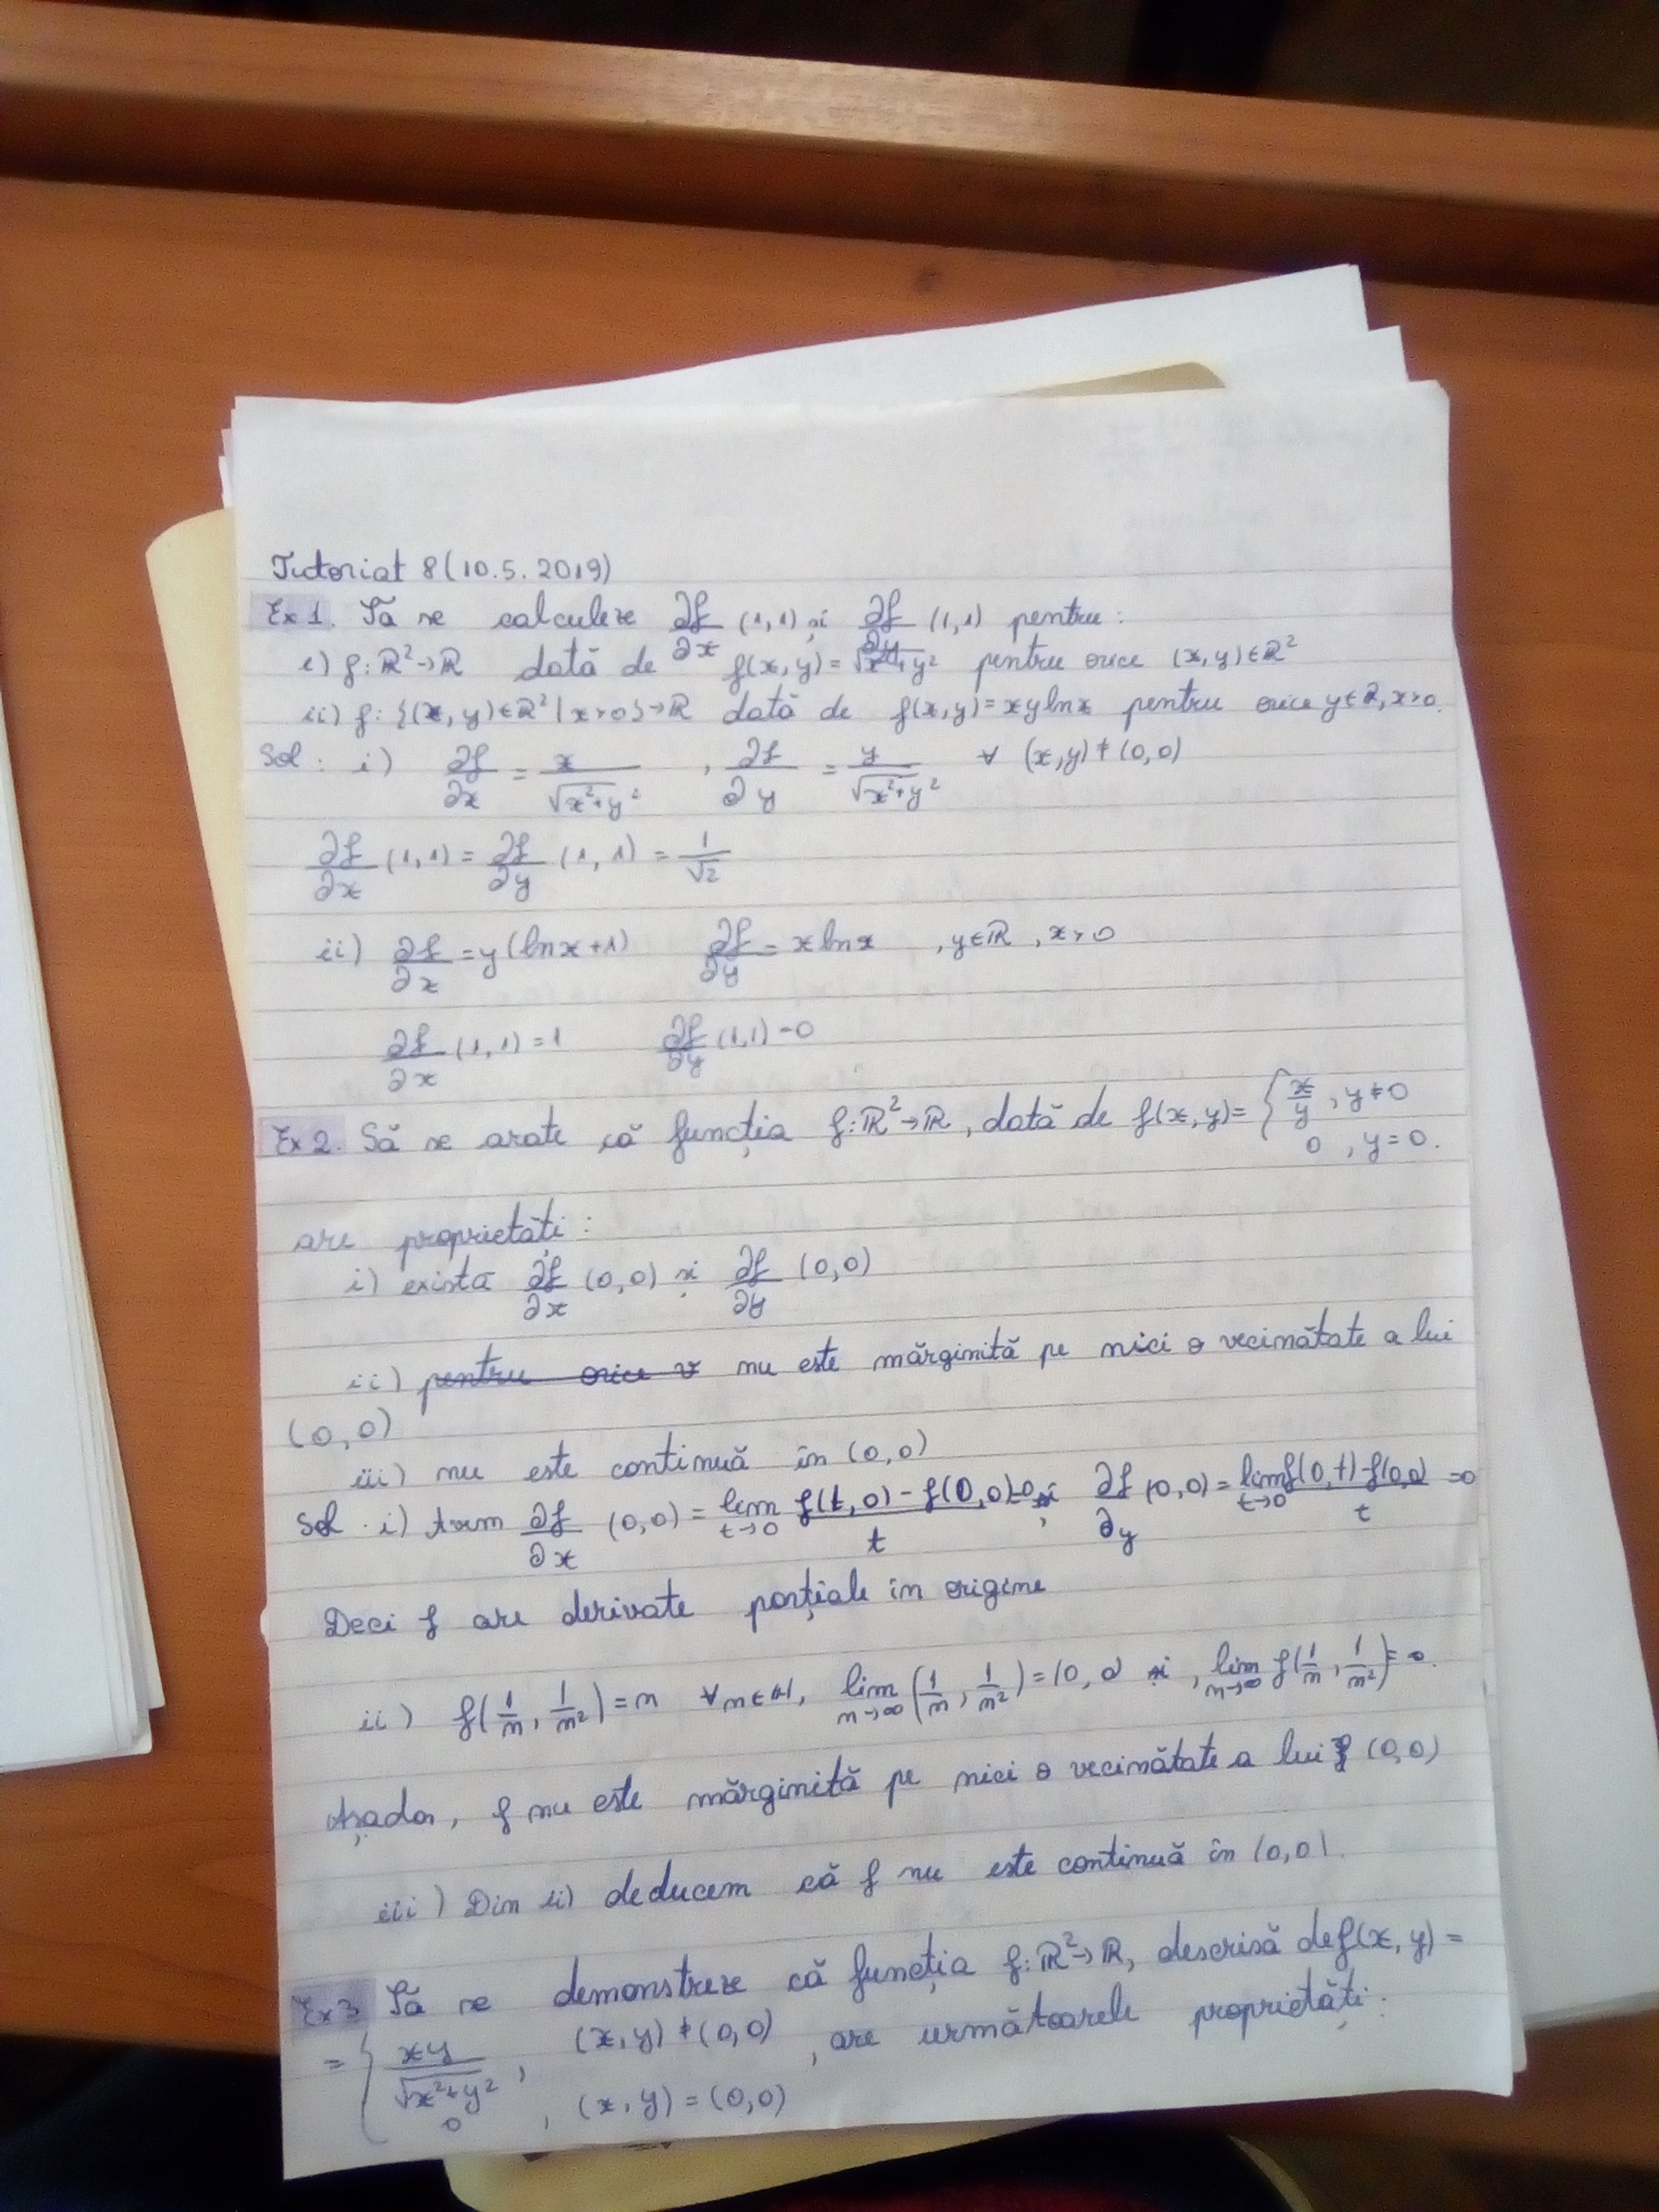 Tutoriat 8 (10.5.2019)
Ex 1. Să se calculeze ∂f/∂x (1,1) și ∂f/∂y (1,1) pentru:
i) f: ℝ²→ℝ dată de f(x,y)=√(x²+y²) pentru orice (x,y)∈ℝ²
ii) f: {(x,y)∈ℝ² | x>0}→ℝ dată de f(x,y)=xy ln x pentru orice y∈ℝ, x>0.
Sol: i) ∂f/∂x = x/√(x²+y²) , ∂f/∂y = y/√(x²+y²) ∀ (x,y)≠(0,0)
∂f/∂x (1,1) = ∂f/∂y (1,1) = 1/√2
ii) ∂f/∂x = y(ln x+1) ∂f/∂y = x ln x , y∈ℝ, x>0
∂f/∂x (1,1)=1 ∂f/∂y (1,1)=0
Ex 2. Să se arate că funcția f: ℝ²→ℝ, dată de f(x,y)= { x/y , y≠0
0 , y=0.
are proprietăți:
i) există ∂f/∂x (0,0) și ∂f/∂y (0,0)
ii) pentru orice v nu este mărginită pe nici o vecinătate a lui
(0,0)
iii) nu este continuă în (0,0)
Sol. i) Avem ∂f/∂x (0,0) = lim t→0 (f(t,0)-f(0,0))/t =0 și ∂f/∂y (0,0) = lim t→0 (f(0,t)-f(0,0))/t =0
Deci f are derivate parțiale în origine
ii) f(1/n, 1/n²)=n ∀n∈ℕ, lim n→∞ (1/n, 1/n²)=(0,0) și, lim n→∞ f(1/n, 1/n²)=∞.
Așadar, f nu este mărginită pe nici o vecinătate a lui (0,0)
iii) Din ii) deducem că f nu este continuă în (0,0).
Ex 3 Să se demonstreze că funcția f: ℝ²→ℝ, descrisă de f(x,y)=
= { xy/√(x²+y²) , (x,y)≠(0,0) , are următoarele proprietăți:
0 , (x,y)=(0,0)